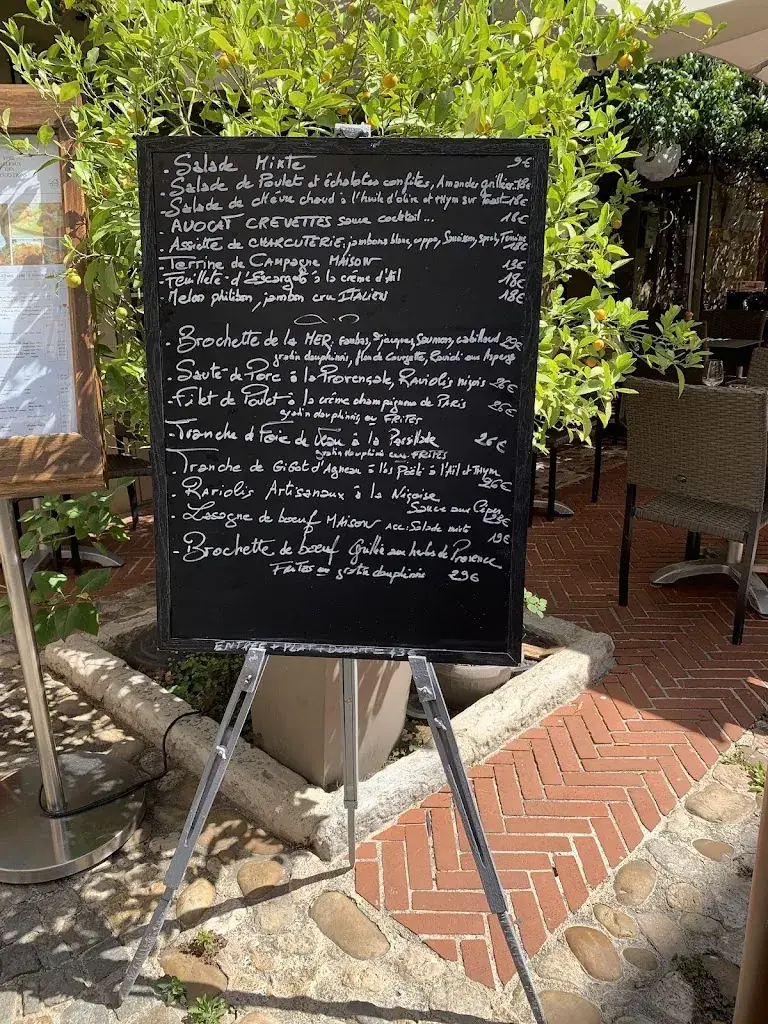 . Salade Mixte 9€
. Salade de Poulet et échalotes confites, Amandes grillées. 18€
. Salade de chèvre chaud à l'huile d'olive et thym sur toast 18€
. AVOCAT CREVETTES sauce cocktail... 18€
. Assiette de CHARCUTERIE, jambons blanc, coppa, Saucisson, speck, Terrine
. Terrine de Campagne MAISON 13€
. Feuilleté d'Escargots à la crème d'Ail 18€
. Melon philibon, jambon cru ITALIEN 18€
. Brochette de la MER, Gambas, St jacques, Saumon, cabillaud 29€
gratin dauphinois, flan de Courgette, Ravioli aux Asperges
. Sauté de Porc à la Provençale, Raviolis niçois 26€
. Filet de Poulet à la crème champignons de PARIS 26€
gratin dauphinois ou FRITES
. Tranche d Foie de Veau à la Persillade 26€
gratin dauphinois ou FRITES
. Tranche de Gigot d'Agneau à la Poêle à l'Ail et Thym 26€
. Raviolis Artisanaux à la Niçoise
Sauce aux Cèpes 23€
. Lasagne de boeuf MAISON acc. Salade mixte 19€
. Brochette de boeuf Grillée aux herbes de Provence
Frites ou gratin dauphinois 29€
ENTRÉE + PLAT